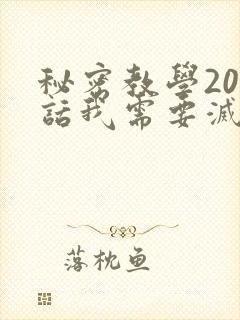 秘密教學20
話我需要減
落枕鱼